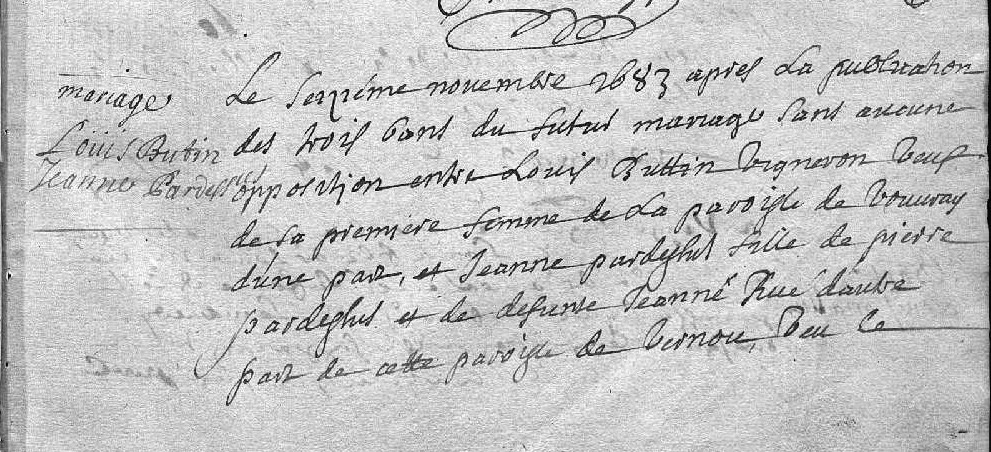 mariage
Louis Butin
Jeanne Pardess
Le seziéme novembre 1683 apres La publication
des trois bans du futur mariage sans aucune
opposition entre Louis Buttin vigneron veuf
de sa premiere femme de La paroisse de vouvray
d'une part, et Jeanne pardeshus fille de pierre
pardeshus et de defunte Jeanne Rué dautre
part de cette paroisse de vernou, veu le